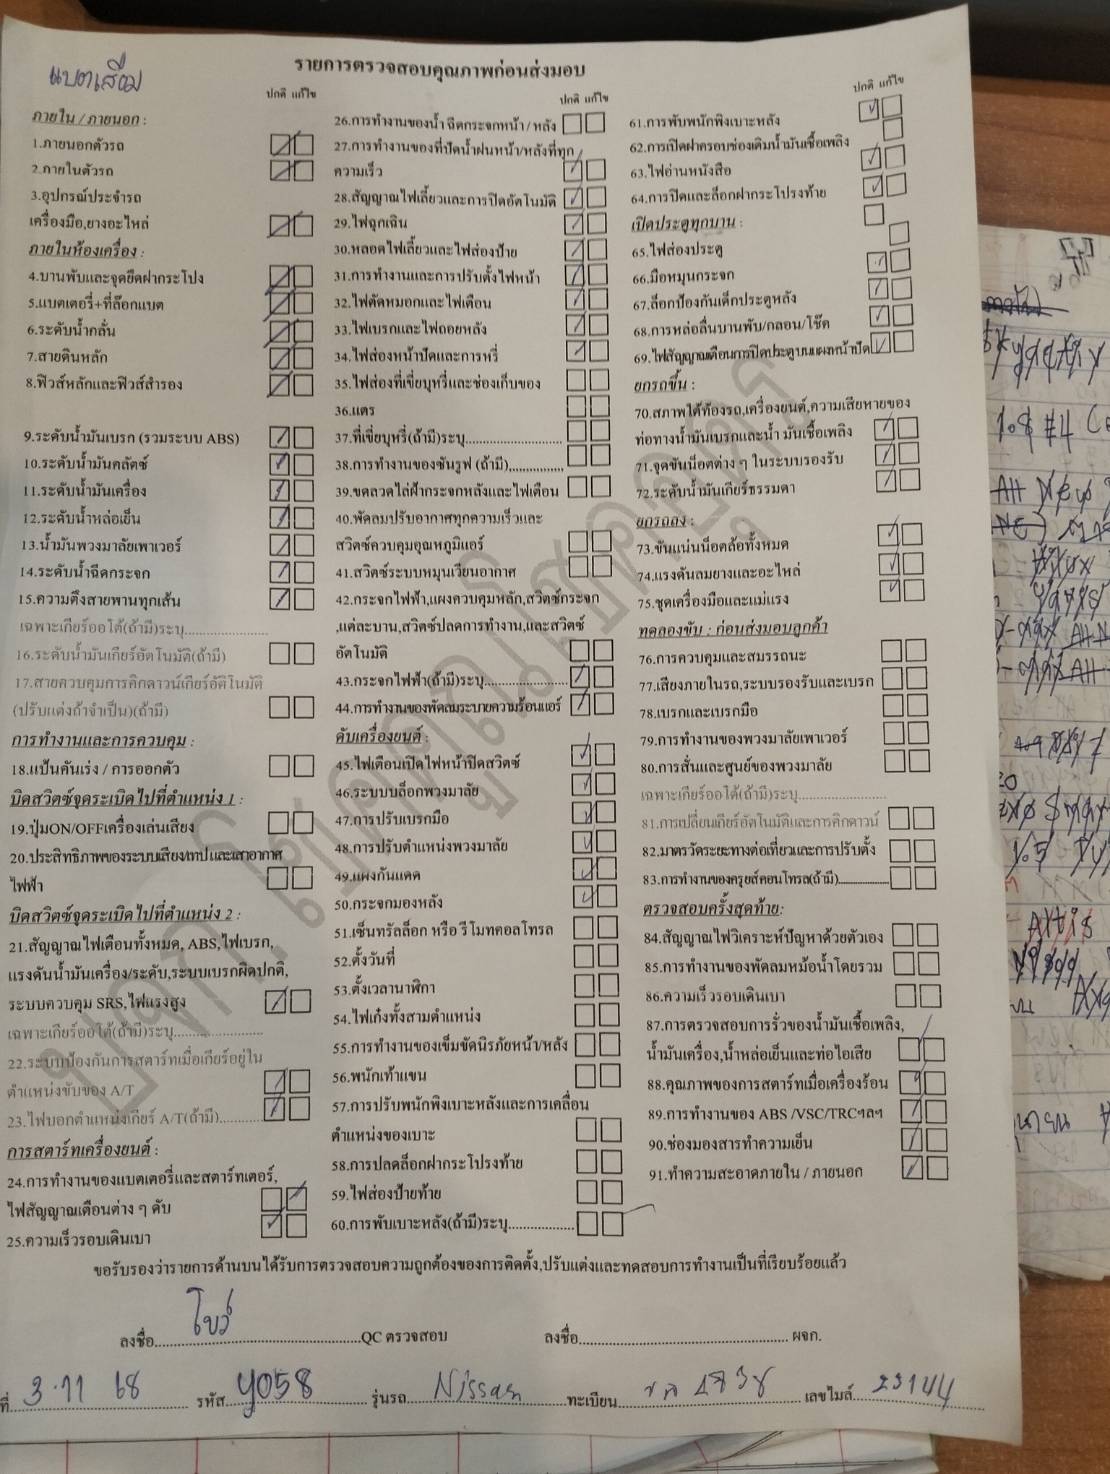 แบตเสื่อม
รายการตรวจสอบคุณภาพก่อนส่งมอบ
ปกติ แก้ไข
ภายใน / ภายนอก :
1.ภายนอกตัวรถ
2.ภายในตัวรถ
3.อุปกรณ์ประจำรถ
เครื่องมือ,ยางอะไหล่
ภายในห้องเครื่อง :
4.บานพับและจุดยึดฝากระโปง
5.แบตเตอรี่+ที่ล๊อกแบต
6.ระดับน้ำกลั่น
7.สายดินหลัก
8.ฟิวส์หลักและฟิวส์สำรอง
9.ระดับน้ำมันเบรก (รวมระบบ ABS)
10.ระดับน้ำมันคลัตช์
11.ระดับน้ำมันเครื่อง
12.ระดับน้ำหล่อเย็น
13.น้ำมันพวงมาลัยเพาเวอร์
14.ระดับน้ำฉีดกระจก
15.ความตึงสายพานทุกเส้น
เฉพาะเกียร์ออโต้(ถ้ามี)ระบุ....................
16.ระดับน้ำมันเกียร์อัตโนมัติ(ถ้ามี)
17.สายควบคุมการคิกดาวน์เกียร์อัติโนมัติ
(ปรับแต่งถ้าจำเป็น)(ถ้ามี)
การทำงานและการควบคุม :
18.แป้นคันเร่ง / การออกตัว
บิดสวิตซ์จุดระเบิดไปที่ตำแหน่ง 1 :
19.ปุ่มON/OFFเครื่องเล่นเสียง
20.ประสิทธิภาพของระบบเสียง/เทปและเสาอากาศ
ไฟฟ้า
บิดสวิตซ์จุดระเบิดไปที่ตำแหน่ง 2 :
21.สัญญาณไฟเตือนทั้งหมด, ABS,ไฟเบรก,
แรงดันน้ำมันเครื่อง/ระดับ,ระบบเบรกผิดปกติ,
ระบบควบคุม SRS,ไฟแรงสูง
เฉพาะเกียร์ออโต้(ถ้ามี)ระบุ....................
22.ระบบป้องกันการสตาร์ทเมื่อเกียร์อยู่ใน
ตำแหน่งขับของ A/T
23.ไฟบอกตำแหน่งเกียร์ A/T(ถ้ามี)..........
การสตาร์ทเครื่องยนต์ :
24.การทำงานของแบตเตอรี่และสตาร์ทเตอร์,
ไฟสัญญาณเตือนต่าง ๆ ดับ
25.ความเร็วรอบเดินเบา
ปกติ แก้ไข
26.การทำงานของน้ำฉีดกระจกหน้า / หลัง
27.การทำงานของที่ปัดน้ำฝนหน้า/หลังที่ทุก
ความเร็ว
28.สัญญาณไฟเลี้ยวและการปิดอัตโนมัติ
29.ไฟฉุกเฉิน
30.หลอดไฟเลี้ยวและไฟส่องป้าย
31.การทำงานและการปรับตั้งไฟหน้า
32.ไฟตัดหมอกและไฟเตือน
33.ไฟเบรกและไฟถอยหลัง
34.ไฟส่องหน้าปัดและการหรี่
35.ไฟส่องที่เขี่ยบุหรี่และช่องเก็บของ
36.แตร
37.ที่เขี่ยบุหรี่(ถ้ามี)ระบุ............................
38.การทำงานของซันรูฟ (ถ้ามี)................
39.ขดลวดไล่ฝ้ากระจกหลังและไฟเตือน
40.พัดลมปรับอากาศทุกความเร็วและ
สวิตซ์ควบคุมอุณหภูมิแอร์
41.สวิตซ์ระบบหมุนเวียนอากาศ
42.กระจกไฟฟ้า,แผงควบคุมหลัก,สวิตซ์กระจก
,แต่ละบาน,สวิตซ์ปลดการทำงาน,และสวิตซ์
อัตโนมัติ
43.กระจกไฟฟ้า(ถ้ามี)ระบุ........................
44.การทำงานของพัดลมระบายความร้อนแอร์
ดับเครื่องยนต์ :
45.ไฟเตือนเปิดไฟหน้าปิดสวิตซ์
46.ระบบบล็อกพวงมาลัย
47.การปรับเบรกมือ
48.การปรับตำแหน่งพวงมาลัย
49.แผงกันแดด
50.กระจกมองหลัง
51.เซ็นทรัลล็อก หรือ รีโมทคอลโทรล
52.ตั้งวันที่
53.ตั้งเวลานาฬิกา
54.ไฟเก๋งทั้งสามตำแหน่ง
55.การทำงานของเข็มขัดนิรภัยหน้า/หลัง
56.พนักเท้าแขน
57.การปรับพนักพิงเบาะหลังและการเคลื่อน
ตำแหน่งของเบาะ
58.การปลดล็อกฝากระโปรงท้าย
59.ไฟส่องป้ายท้าย
60.การพับเบาะหลัง(ถ้ามี)ระบุ...................
ปกติ แก้ไข
61.การพับพนักพิงเบาะหลัง
62.การเปิดฝาครอบช่องเติมน้ำมันเชื้อเพลิง
63.ไฟอ่านหนังสือ
64.การปิดและล็อกฝากระโปรงท้าย
เปิดประตูทุกบาน :
65.ไฟส่องประตู
66.มือหมุนกระจก
67.ล็อกป้องกันเด็กประตูหลัง
68.การหล่อลื่นบานพับ/กลอน/โช๊ค
69.ไฟสัญญาณเตือนการปิดประตูบนแผงหน้าปัด
ยกรถขึ้น :
70.สภาพใต้ท้องรถ,เครื่องยนต์,ความเสียหายของ
ท่อทางน้ำมันเบรกและน้ำ มันเชื้อเพลิง
71.จุดขันน็อตต่าง ๆ ในระบบรองรับ
72.ระดับน้ำมันเกียร์ธรรมดา
ยกรถลง :
73.ขันแน่นน็อตล้อทั้งหมด
74.แรงดันลมยางและอะไหล่
75.ชุดเครื่องมือและแม่แรง
ทดลองขับ : ก่อนส่งมอบลูกค้า
76.การควบคุมและสมรรถนะ
77.เสียงภายในรถ,ระบบรองรับและเบรก
78.เบรกและเบรกมือ
79.การทำงานของพวงมาลัยเพาเวอร์
80.การสั่นและศูนย์ของพวงมาลัย
เฉพาะเกียร์ออโต้(ถ้ามี)ระบุ......................
81.การเปลี่ยนเกียร์อัตโนมัติและการคิกดาวน์
82.มาตรวัดระยะทางต่อเที่ยวและการปรับตั้ง
83.การทำงานของครุยส์คอนโทรล(ถ้ามี)................
ตรวจสอบครั้งสุดท้าย:
84.สัญญาณไฟวิเคราะห์ปัญหาด้วยตัวเอง
85.การทำงานของพัดลมหม้อน้ำโดยรวม
86.ความเร็วรอบเดินเบา
87.การตรวจสอบการรั่วของน้ำมันเชื้อเพลิง,
น้ำมันเครื่อง,น้ำหล่อเย็นและท่อไอเสีย
88.คุณภาพของการสตาร์ทเมื่อเครื่องร้อน
89.การทำงานของ ABS /VSC/TRCฯลฯ
90.ช่องมองสารทำความเย็น
91.ทำความสะอาดภายใน / ภายนอก
ขอรับรองว่ารายการด้านบนได้รับการตรวจสอบความถูกต้องของการติดตั้ง,ปรับแต่งและทดสอบการทำงานเป็นที่เรียบร้อยแล้ว
ลงชื่อ โบว์ QC ตรวจสอบ ลงชื่อ............................ ผจก.
ที่ 3.11 68 รหัส y058 รุ่นรถ Nissan ทะเบียน เลขไมล์ 23144